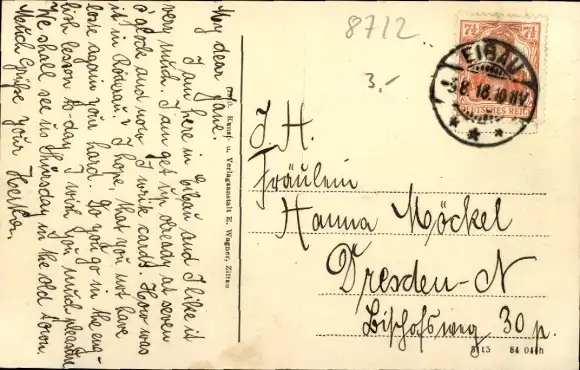 My dear Jane.
I am here in Eibau and I like it
very much. I am get up already at seven
o'clock and now I write cards. How was
it in Röderau? I hope, that you not have
lose again your hard. Do you go in the eng-
lish lesson to-day. I wish you much pleasure
We shall see us Thursday in the old town.
Grüße your Herta.
Kunst- u. Verlagsanstalt E. Wagner, Zittau
8712
3.-
7½ 7½
EIBAU
3.8.18.10-11V
DEUTSCHES REICH
J. H.
Fräulein
Hanna Möckel
Dresden-N
Bischofsweg 30 p.
84